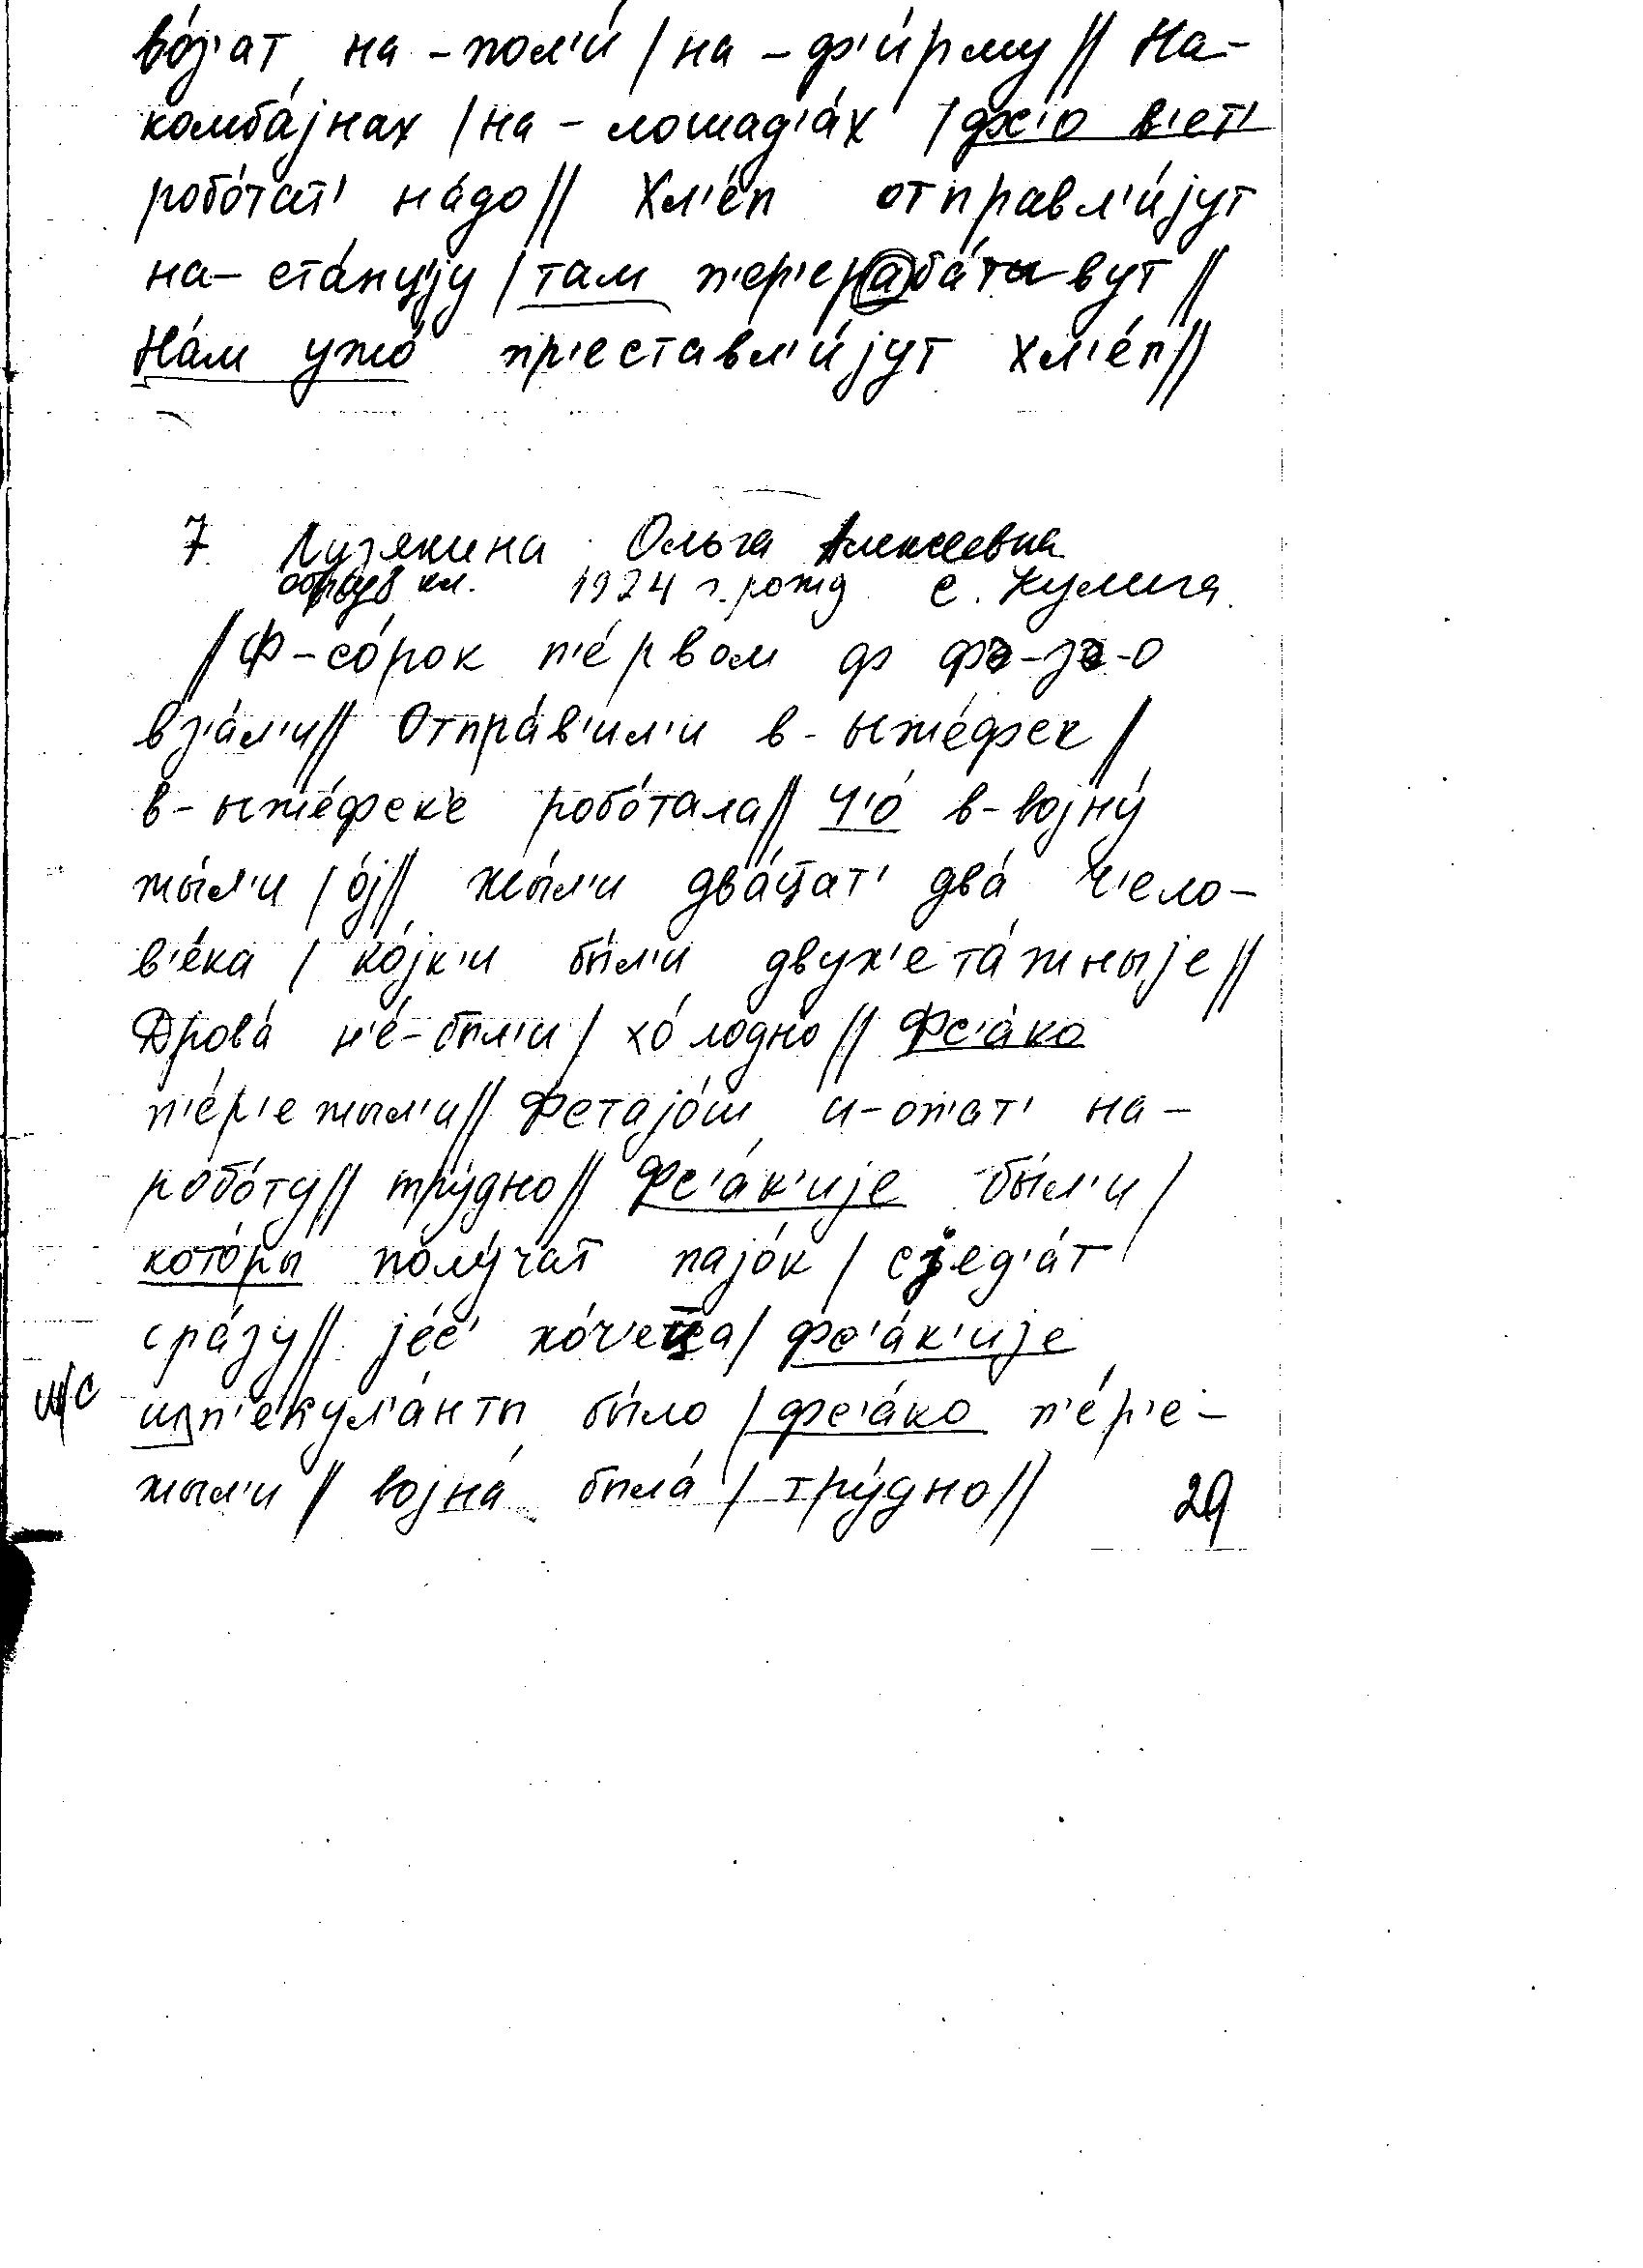 во́з'ат на-пол'и́ / на-ф'и́рму // На-
комба́јнах / на-лошад'а́х / фс'о в'ет'
робо́тат' на́до // Хл'е́п отправл'и́јут
на-ста́нцију / там п'ер'ераба́тывут //
На́м ужо́ пр'еставл'и́јут хл'е́п //
7. Лузянина Ольга Алексеевна
образ 8 кл. 1924 г. рожд с. Кулига.
// Ф-со́рок п'е́рвом ф фэ-зэ-о
вз'а́л'и // Отпра́в'ил'и в-ыже́фск /
в-ыже́фск'е робо́тала // Ч'о́ в-војну́
жы́л'и / о́ј // жы́л'и два́цат' два́ ч'ело-
в'е́ка / ко́јк'и бы́л'и двух'ета́жныје //
Дрова́ н'е́-был'и / хо́лодно // Фс'а́ко
п'е́р'ежыл'и // Фстајо́ш и-оп'ат' на-
робо́ту // тру́дно // Фс'а́к'ије бы́л'и /
кото́ры полу́чат пајо́к / сјед'а́т
сра́зу // је́с' хо́ч'еца / фс'а́к'ије
ш/с
шп'екул'а́нты бы́ло / фс'а́ко п'е́р'е-
жыл'и // војна́ была́ / тру́дно //
29